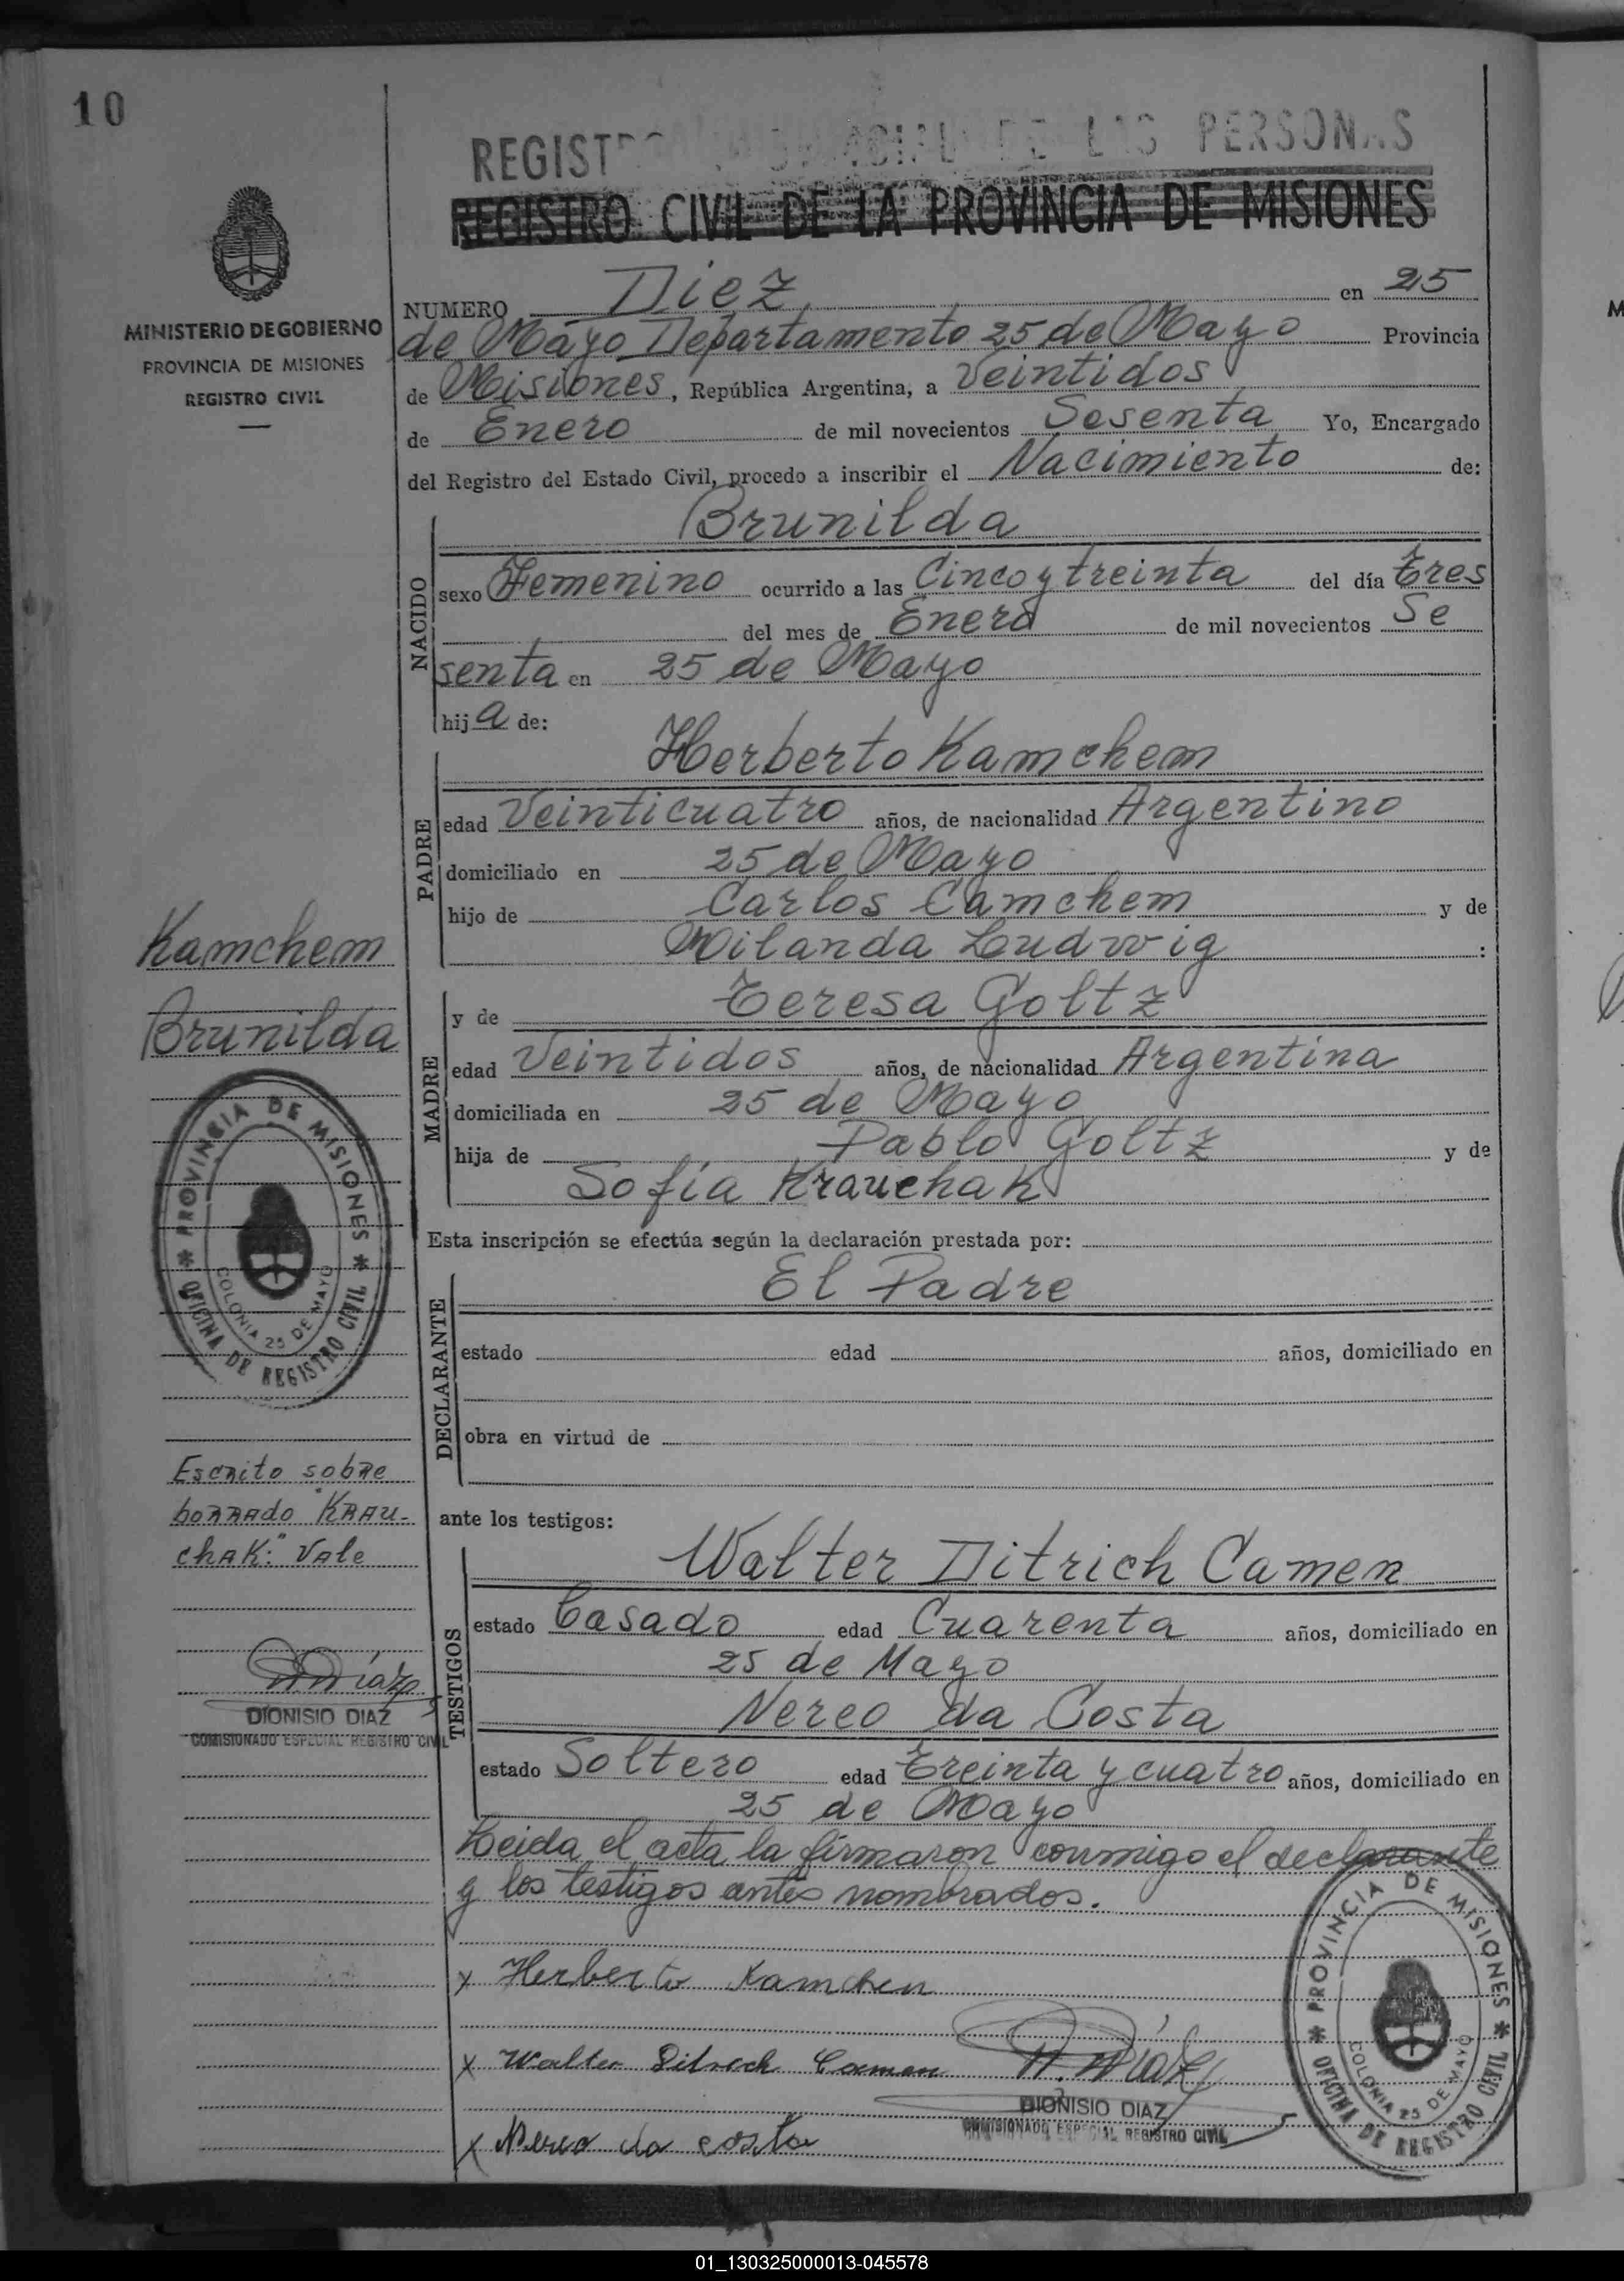 10
REGISTRO PROVINCIAL DE LAS PERSONAS
REGISTRO CIVIL DE LA PROVINCIA DE MISIONES
MINISTERIO DE GOBIERNO
PROVINCIA DE MISIONES
REGISTRO CIVIL
NUMERO Diez en 25
de Mayo Departamento 25 de Mayo Provincia
de Misiones, República Argentina, a Veintidos
de Enero de mil novecientos Sesenta Yo, Encargado
del Registro del Estado Civil, procedo a inscribir el Nacimiento de:
NACIDO
Brunilda
sexo Femenino ocurrido a las Cinco y treinta del día tres
del mes de Enero de mil novecientos Se
senta en 25 de Mayo
hija de:
PADRE
Herberto Kamchem
edad Veinticuatro años, de nacionalidad Argentino
domiciliado en 25 de Mayo
hijo de Carlos Camchem y de
Milanda Ludwig :
MADRE
y de Teresa Goltz
edad Veintidos años, de nacionalidad Argentina
domiciliada en 25 de Mayo
hija de Pablo Goltz y de
Sofía Krauchak
Esta inscripción se efectúa según la declaración prestada por:
DECLARANTE
El Padre
estado edad años, domiciliado en
obra en virtud de
ante los testigos:
TESTIGOS
Walter Ditrich Camen
estado Casado edad Cuarenta años, domiciliado en
25 de Mayo
Nereo da Costa
estado Soltero edad Treinta y cuatro años, domiciliado en
25 de Mayo
Leida el acta la firmaron conmigo el declarante
y los testigos antes nombrados.
x Herberto Kamchen
x Walter Ditrich Camen
x Nereo da costa
D. Díaz
DIONISIO DIAZ
COMISIONADO ESPECIAL REGISTRO CIVIL
PROVINCIA DE MISIONES
OFICINA DE REGISTRO CIVIL
COLONIA 25 DE MAYO
Kamchem
Brunilda
PROVINCIA DE MISIONES
OFICINA DE REGISTRO CIVIL
COLONIA 25 DE MAYO
Escrito sobre
borrado "Krau-
chak:" Vale
D. Díaz
DIONISIO DIAZ
COMISIONADO ESPECIAL REGISTRO CIVIL
M
01_130325000013-045578